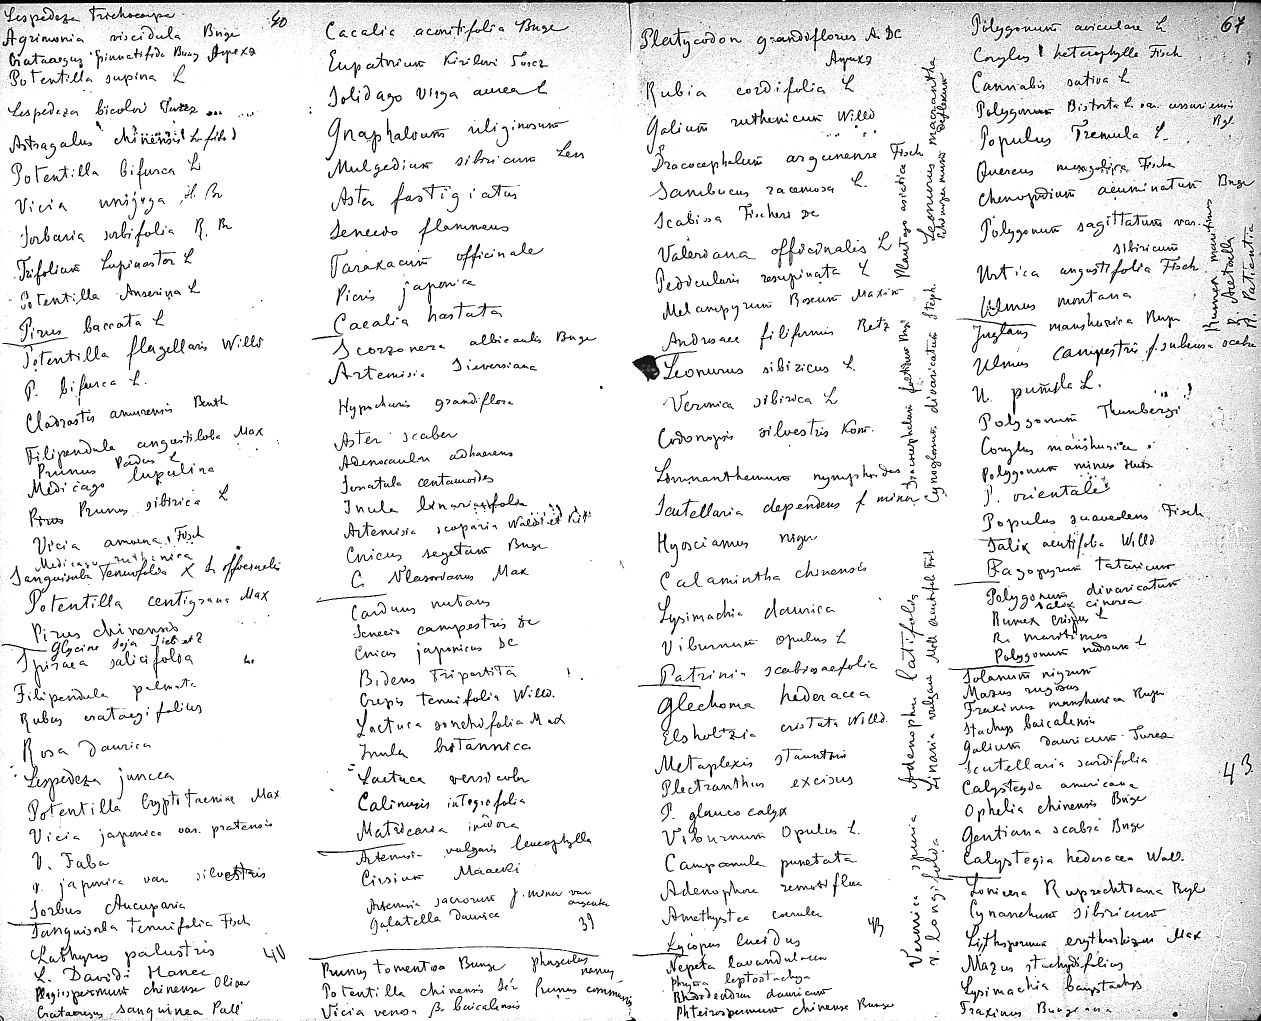 Lespedeza Trichocarpa 40
Agrimonia viscidula Bnge
Crataegus pinnatifida Bung
Potentilla supina L
Lespedeza bicolor Turcz
Astragalus chinensis L fil
Potentilla bifurca L
Vicia unijuga A. Br
Sorbaria sorbifolia R. Br
Trifolium Lupinaster L
Potentilla Anserina L
Pirus baccata L
Potentilla flagellaris Willd
P. bifurca L.
Cladrastis amurensis Benth
Filipendula angustiloba Max
Prunus Padus L
Medicago lupulina
Prunus sibirica L
Vicia amoena Fisch
Medicago ruthenica
Sanguisorba tenuifolia X L officinalis
Potentilla centigrana Max
Pirus chinensis
Glycine Soja Sieb et Z
Spiraea salicifolia
Filipendula palmata
Rubus crataegifolius
Rosa Daurica
Lespedeza juncea
Potentilla Cryptotaeniae Max
Vicia japonica var. pratensis
V. Faba
V. japonica var silvestris
Sorbus Aucuparia
Sanguisorba tenuifolia Fisch
Lathyrus palustris
L. Davidi Hance
Plagiospermum chinense Oliver
Crataegus sanguinea Pall
Cacalia aconitifolia Bnge
Eupatorium Kirilovi Turcz
Solidago Virga aurea L
Gnaphalium uliginosum
Mulgedium sibiricum Less
Aster fastigiatus
Senecio flammeus
Taraxacum officinale
Picris japonica
Cacalia hastata
Scorzonera albicaulis Bunge
Artemisia Sieversiana
Hypochaeris grandiflora
Aster scaber
Adenocaulon adhaerens
Serratula centauroides
Inula linariaefolia
Artemisia scoparia Waldst et Kit
Cnicus segetum Bunge
C. Vlasovianus Max
Carduus nutans
Senecio campestris DC
Cnicus japonicus DC
Bidens Tripartita
Crepis tenuifolia Willd.
Lactuca sonchifolia Max
Inula britannica
Lactuca versicolor
Calimeris integrifolia
Matricaria inodora
Artemisia vulgaris leucophylla
Cirsium Maackii
Artemisia sacrorum f. minor var
Galatella Daurica 39
Prunus tomentosa Bunge Phaseolus nanus
Potentilla chinensis Ser Prunus communis
Vicia venosa β baicalensis
Platycodon grandiflorus A DC
Rubia cordifolia L
Galium ruthenicum Willd
Dracocephalum argunense Fisch
Sambucus racemosa L.
Scabiosa Fischeri DC
Valeriana officinalis L
Pedicularis resupinata L
Melampyrum roseum Maxim
Androsace filiformis Retz
Leonurus sibiricus L
Veronica sibirica L
Codonopsis silvestris Kom.
Limnanthemum nymphoides
Scutellaria dependens f minor
Hyosciamus niger
Calamintha chinensis
Lysimachia daurica
Viburnum opulus L
Patrinia scabiosaefolia
Glechoma hederacea
Elsholtzia cristata Willd.
Metaplexis stauntoni
Plectranthus excisus
P. glaucocalyx
Viburnum Opulus L.
Campanula punctata
Adenophora remotiflora
Amethystea coerulea
Lycopus lucidus
Nepeta lavandulacea
Phryma leptostachya
Rhododendron dauricum
Phteirospermum chinense Bunge
Leonurus macrantha
Plantago asiatica
Cynoglossum divaricatum Steph
Adenophora latifolia
Linaria vulgaris Mill acutiflora
Veronica spuria
V. longifolia
Polygonum aviculare L 67
Corylus heterophylla Fisch
Cannabis sativa L
Polygonum Bistorta L var. ussuriensis
Rgl
Populus Tremula L.
Quercus mongolica Fisch
Chenopodium acuminatum Bunge
Polygonum sagittatum var.
sibiricum
Urtica angustifolia Fisch
Ulmus montana
Juglans manshurica Rupr
Ulmus campestris f. suberosa scabra
U. pumila L.
Polygonum Thunbergi
Corylus manshurica
Polygonum minus Huds
P. orientale
Populus suaveolens Fisch
Salix acutifolia Willd
Fagopyrum tataricum
Polygonum divaricatum
Salix cinerea
Rumex crispus L
R. maritimus
Polygonum nodosum L
Solanum nigrum
Mazus rugosus
Fraxinus manshurica Rupr
Stachys baicalensis
Galium dauricum Turcz
Scutellaria scordifolia
Calystegia americana
Ophelia chinensis Bnge
Gentiana scabra Bnge
Calystegia hederacea Wall.
43
Lonicera Ruprechtiana Rgl
Cynanchum sibiricum
Lithospermum erythrorhizon Max
Mazus stachydifolius
Lysimachia barystachys
Fraxinus Bungeana
Rumex maritimus
R. Acetosella
R. Patientia